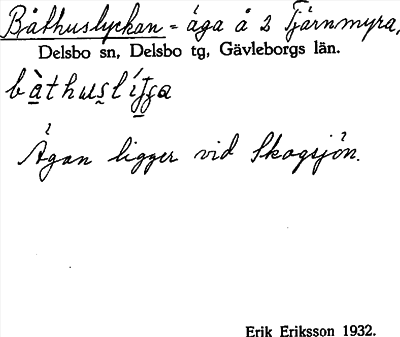 Båthuslyckan = åga å 2 Tjärnmyra,
Delsbo sn, Delsbo tg, Gävleborgs län.
Ågan ligger vid Skogsjön.
Erik Eriksson 1932.